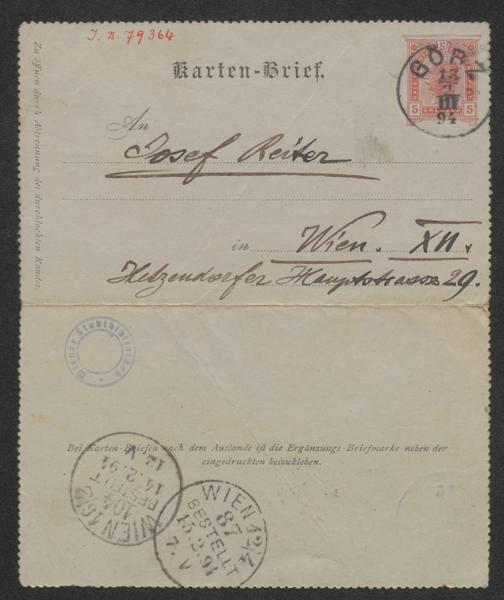 J. n. 79364
Karten-Brief.
5
5 5
GÖRZ
13
2
III
94
An
Josef Reiter
in Wien. XII.
Hetzendorfer Hauptstrasse 29.
Zu öffnen durch Abtrennung des durchlochten Randes.
Wiener Stadtbibliothek
Bei Karten-Briefen nach dem Auslande ist die Ergänzungs-Briefmarke neben der
eingedruckten beizukleben.
WIEN
BESTELLT
14.2.94
WIEN 12/4
87
BESTELLT
15.2.94
7.V